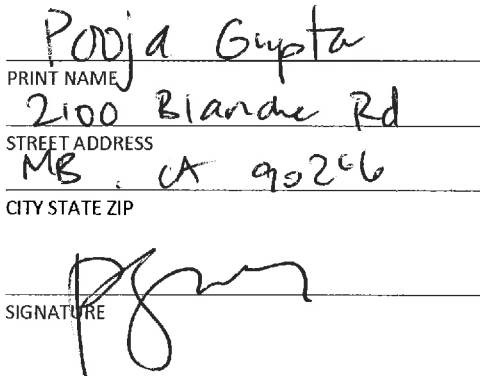 Pooja Gupta
PRINT NAME
2100 Blanche Rd
STREET ADDRESS
MB, CA 90266
CITY STATE ZIP
SIGNATURE